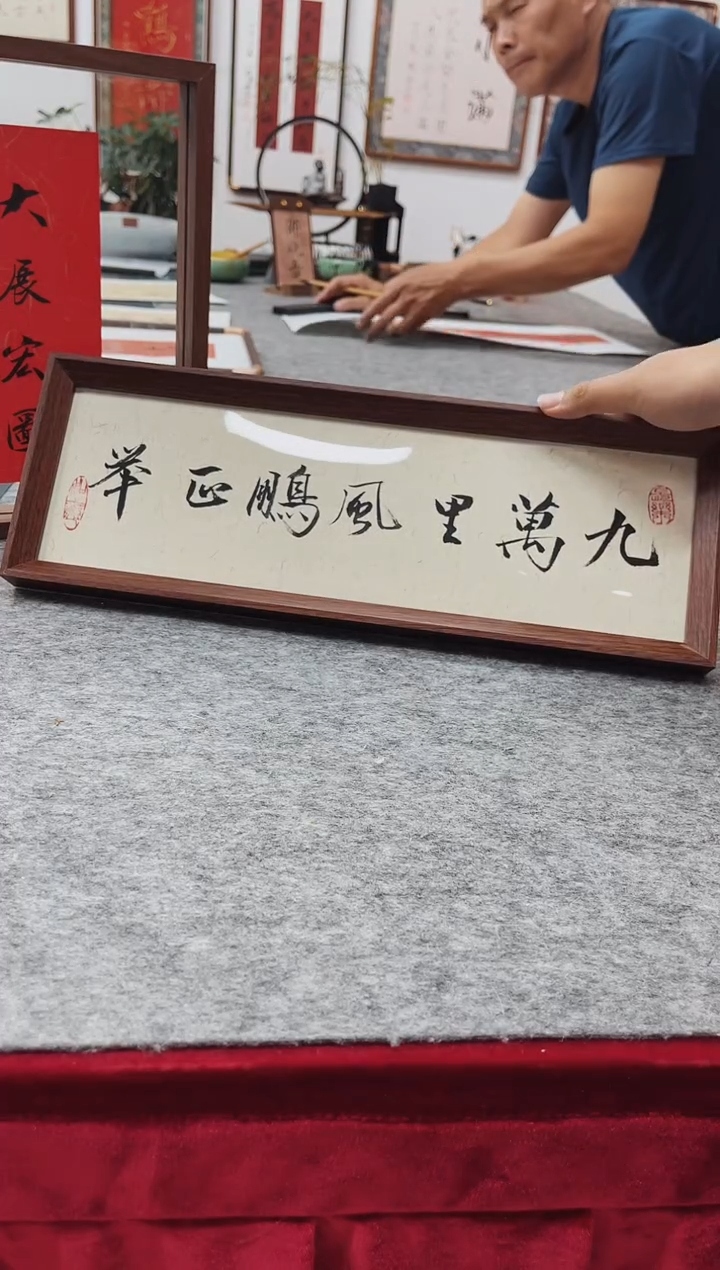 九萬里風鵬正举
大展宏圖